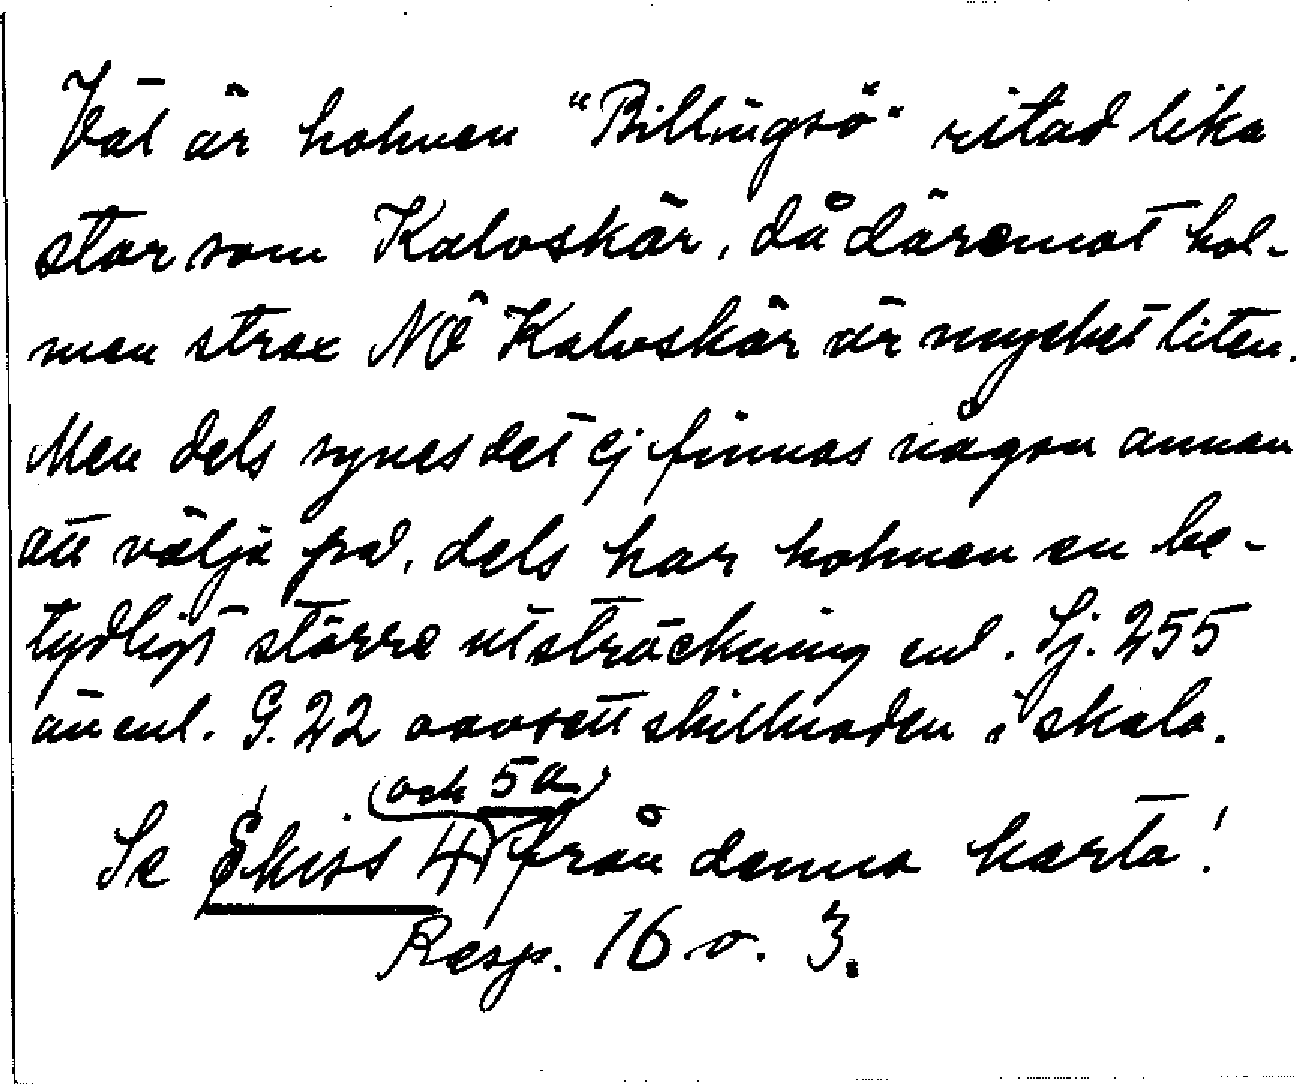 Väl är holmen "Billingsö" ritad lika
stor som Kalvskär, då däremot hol-
men strax NÖ Kalvskär är mycket liten.
Men dels synes det ej finnas någon annan
att välja på, dels har holmen en be-
tydligt större utsträckning enl. Sj. 255
än enl. G. 22 oavsett skillnaden i skala.
(och 5a)
Se Skiss 4 från denna karta!
Resp. 16 o. 3.